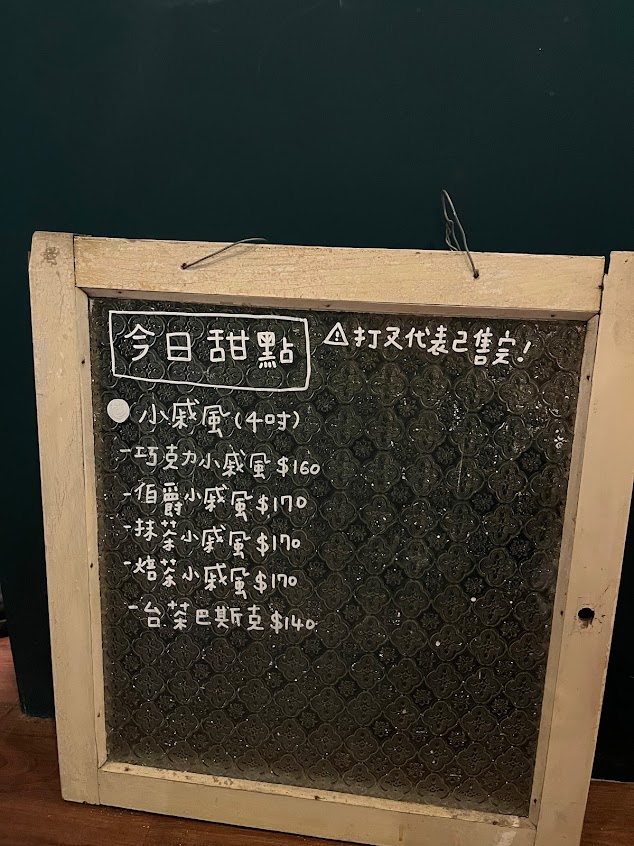 今日甜點
⚠打叉代表已售完!
小戚風(4吋)
-巧克力小戚風$160
-伯爵小戚風$170
-抹茶小戚風$170
-焙茶小戚風$170
-台茶巴斯克$140